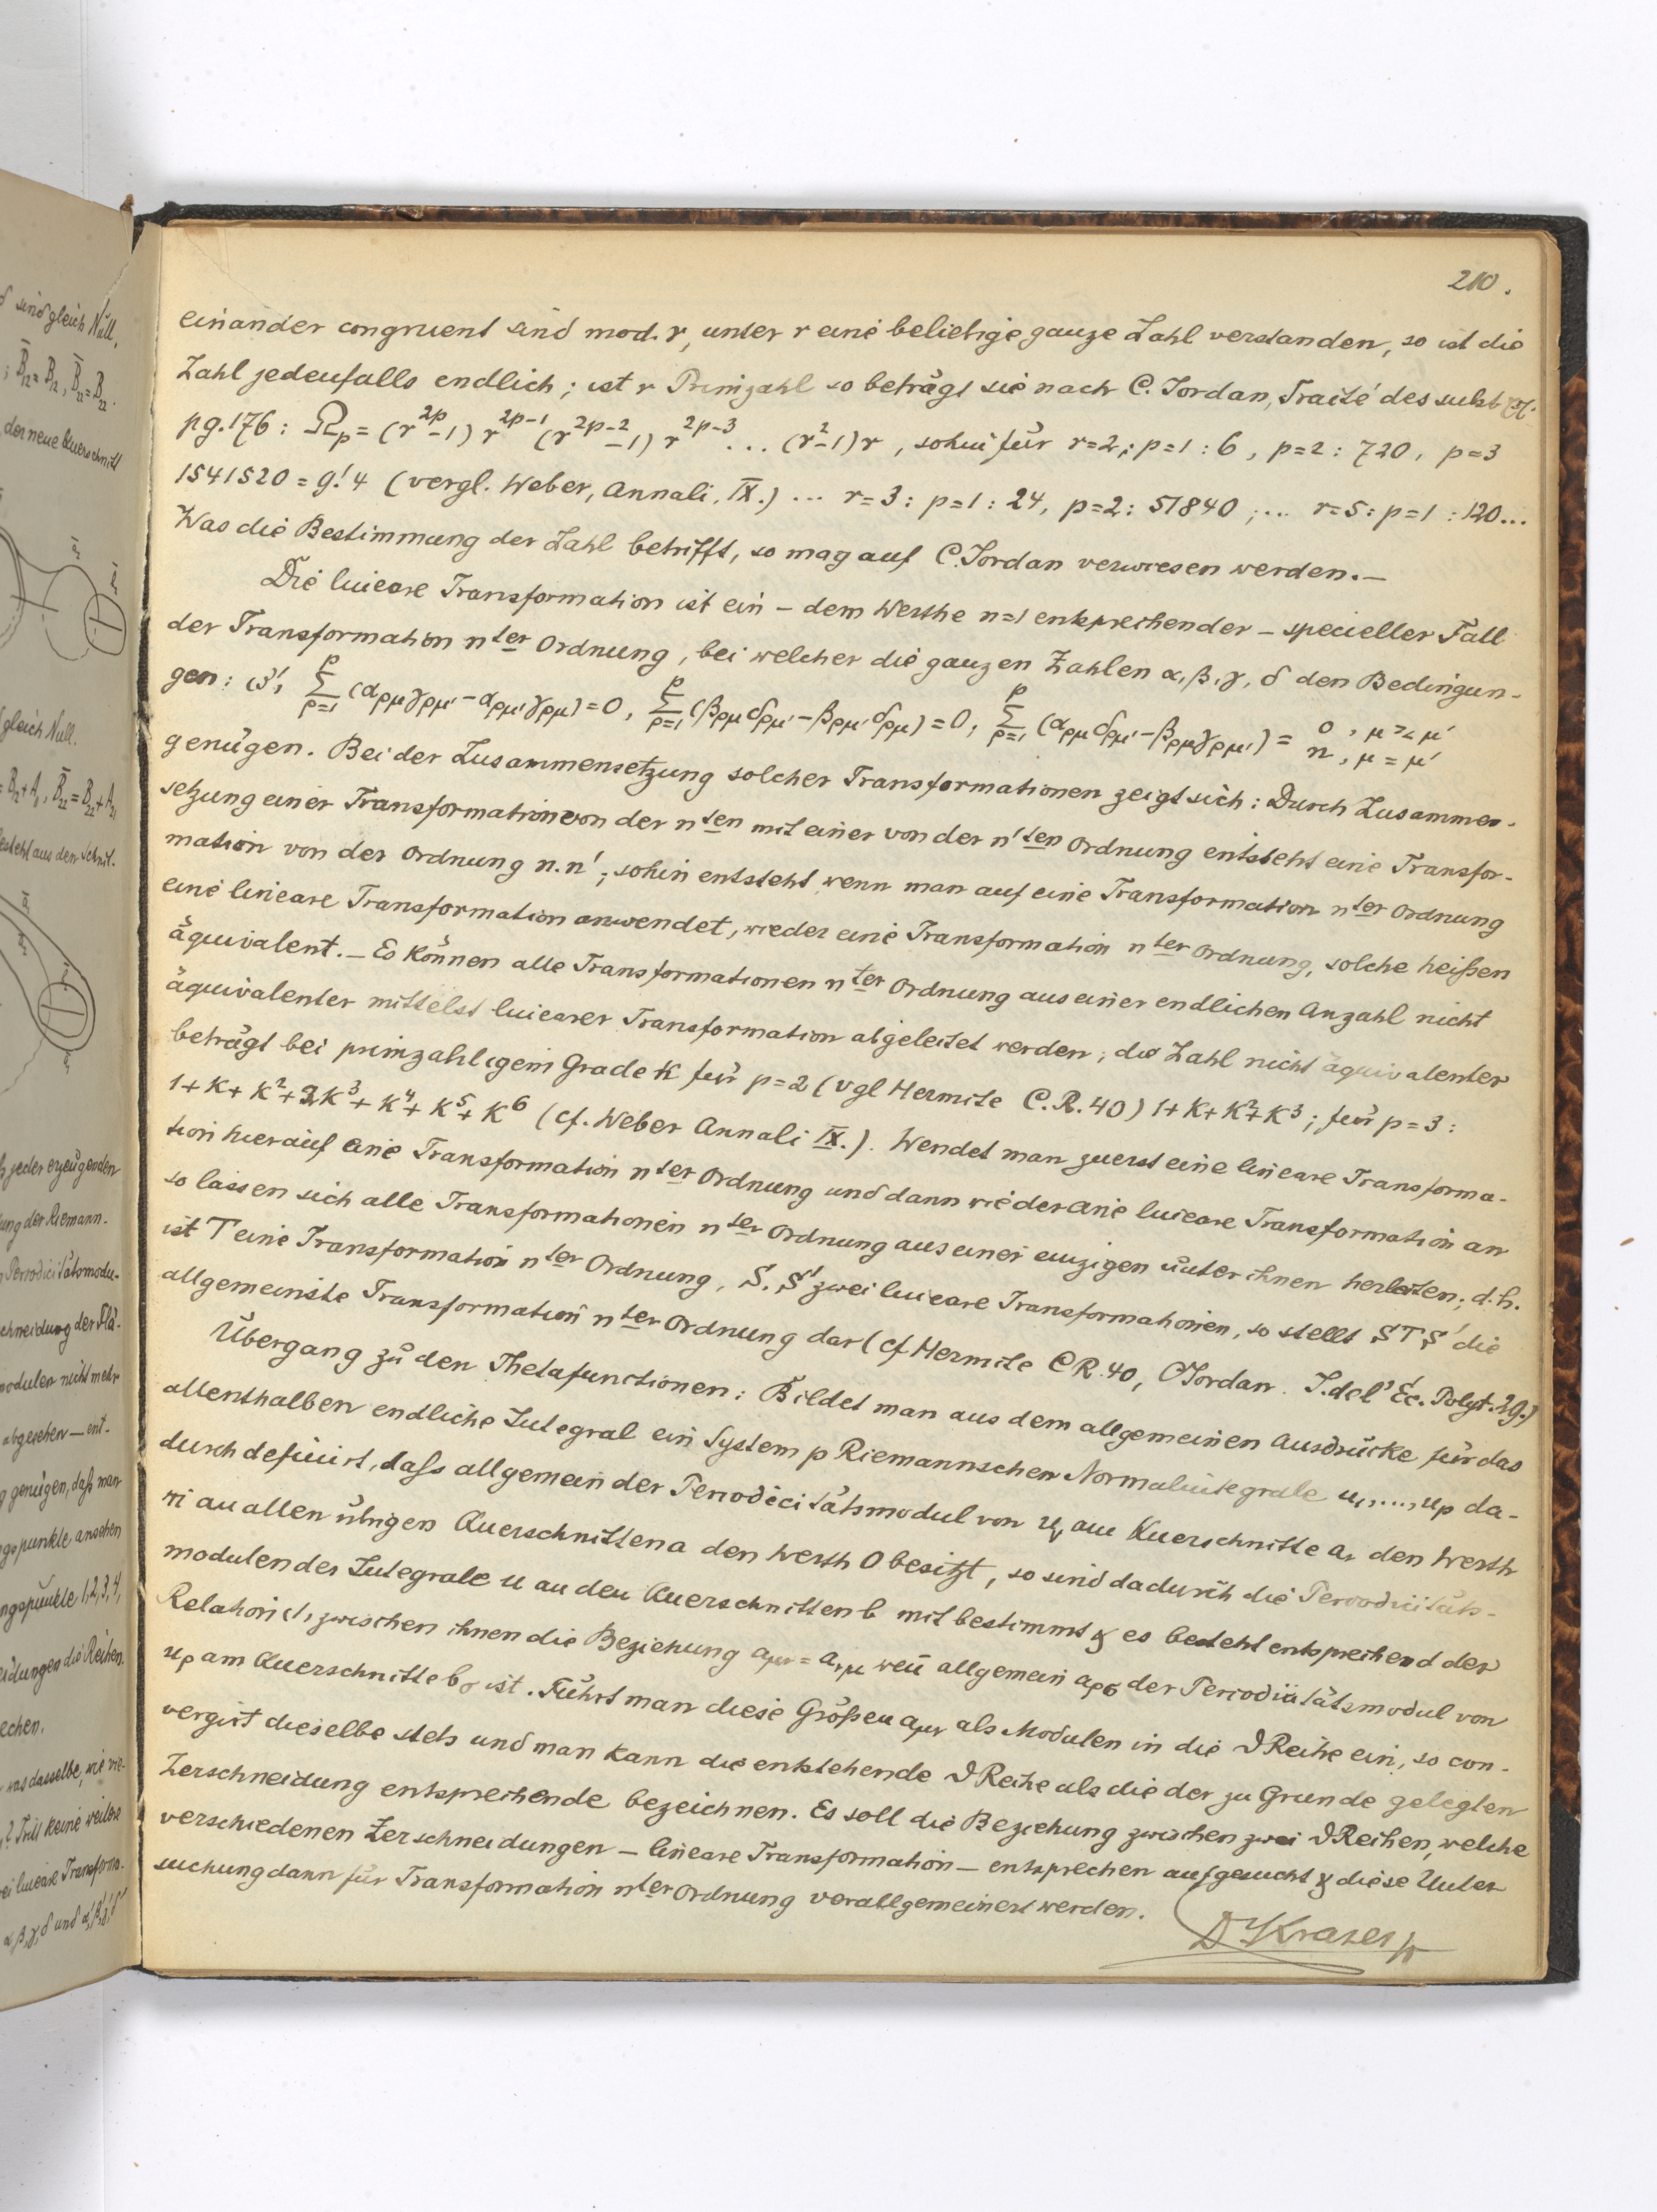 210.
einander congruent sind mod. r, unter r eine beliebige ganze Zahl verstanden, so ist die
Zahl jedenfalls endlich; ist r Primzahl so beträgt sie nach C. Jordan, Traité des subst
pg. 176: Ω_p = (r^{2p}-1) r^{2p-1} (r^{2p-2}-1) r^{2p-3} ... (r^2-1) r, sohin für r=2; p=1 : 6, p=2 : 720, p=3
1541520 = 9!4 (vergl. Weber, Annali, IX.) ... r=3: p=1 : 24, p=2: 51840; ... r=5: p=1 : 120...
Was die Bestimmung der Zahl betrifft, so mag auf C. Jordan verwiesen werden. —
Die lineare Transformation ist ein – dem Werthe n=1 entsprechender – specieller Fall
der Transformation n^{ter} Ordnung, bei welcher die ganzen Zahlen α, β, γ, δ den Bedingun-
gen: (3', Σ_{ρ=1}^{p} (α_{ρμ} γ_{ρμ'} - α_{ρμ'} γ_{ρμ}) = 0, Σ_{ρ=1}^{p} (β_{ρμ} δ_{ρμ'} - β_{ρμ'} δ_{ρμ}) = 0, Σ_{ρ=1}^{p} (α_{ρμ} δ_{ρμ'} - β_{ρμ} γ_{ρμ'}) = 0, μ ≷ μ' n, μ = μ'
genügen. Bei der Zusammensetzung solcher Transformationen zeigt sich: Durch Zusammen-
setzung einer Transformation von der n^{ten} mit einer von der n'^{ten} Ordnung entsteht eine Transfor-
mation von der Ordnung n.n'; sohin entsteht, wenn man auf eine Transformation n^{ter} Ordnung
eine lineare Transformation anwendet, wieder eine Transformation n^{ter} Ordnung, solche heißen
äquivalent. — Es können alle Transformationen n^{ter} Ordnung aus einer endlichen Anzahl nicht
äquivalenter mittelst linearer Transformation abgeleitet werden; die Zahl nicht äquivalenter
beträgt bei primzahligem Grade k für p=2 (vgl Hermite C.R. 40) 1+k+k^2+k^3; für p=3:
1+k+k^2+2k^3+k^4+k^5+k^6 (cf. Weber Annali IX.). Wendet man zuerst eine lineare Transforma-
tion hierauf eine Transformation n^{ter} Ordnung und dann wieder eine lineare Transformation an
so lassen sich alle Transformationen n^{ter} Ordnung aus einer einzigen unter ihnen herleiten; d.h.
ist T eine Transformation n^{ter} Ordnung, S, S' zwei lineare Transformationen, so stellt S T S' die
allgemeinste Transformation n^{ter} Ordnung dar (cf Hermite CR. 40, C Jordan. J. de l'Éc. Polyt. 29.)
Übergang zu den Thetafunctionen: Bildet man aus dem allgemeinen Ausdrücke für das
allenthalben endliche Integral ein System p Riemannschen Normalintegrale u_1, ..., u_p da-
durch definirt, dafs allgemein der Periodicitätsmodul von u_ν am Querschnitte a_ν den Werth
πi an allen übrigen Querschnitten a den Werth 0 besitzt, so sind dadurch die Periodicitäts-
modulen der Integrale u an den Querschnitten b mit bestimmt & es besteht entsprechend der
Relation (1, zwischen ihnen die Beziehung a_{μν} = a_{νμ} wen̄ allgemein a_{ρσ} der Periodicitätsmodul von
u_ρ am Querschnitte b_σ ist. Führt man diese Größen a_{μν} als Modulen in die ϑ Reihe ein, so con-
vergirt dieselbe stets und man kann die entstehende ϑ Reihe als die der zu Grunde gelegten
Zerschneidung entsprechende bezeichnen. Es soll die Beziehung zwischen zwei ϑ Reihen, welche
verschiedenen Zerschneidungen – lineare Transformation – entsprechen aufgesucht & diese Unter
suchung dann für Transformation n^{ter} Ordnung verallgemeinert werden.
Dr Krazer